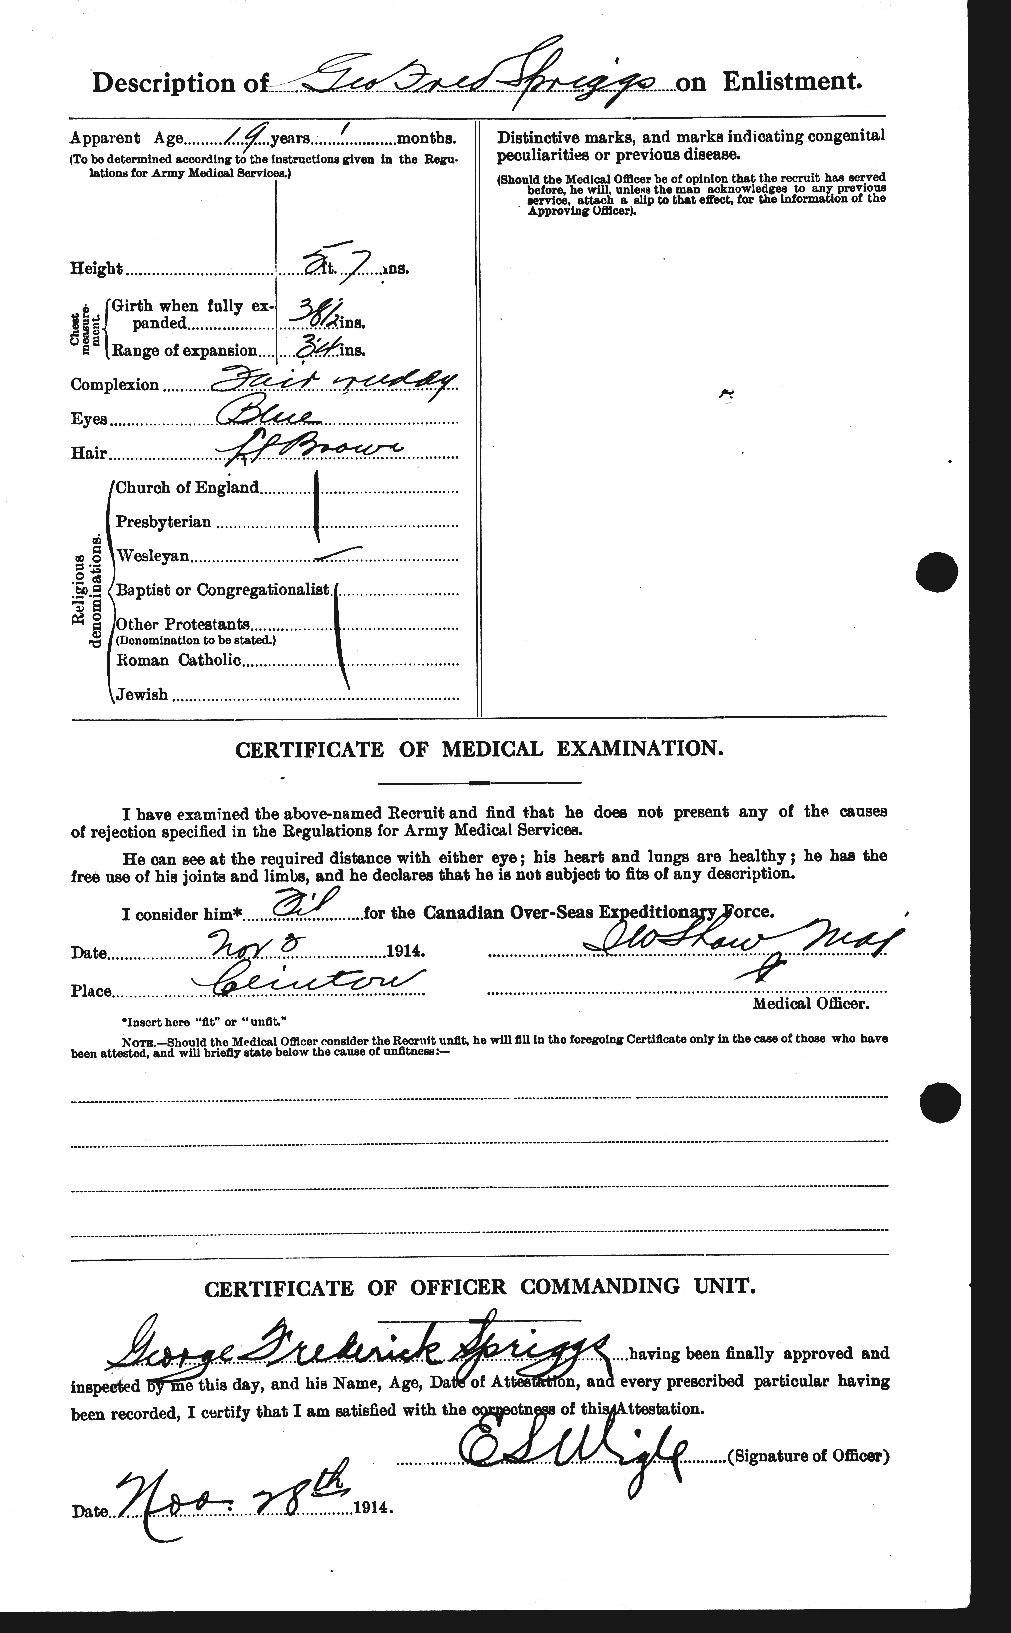 Description of Geo Fred Spriggs on Enlistment.
Apparent Age 19 years 1 months.
(To be determined according to the instructions given in the Regu-
lations for Army Medical Services.)
Height 5 ft. 7 ins.
Chest measure-ment.
Girth when fully ex-
panded 38 1/2 ins.
Range of expansion 34 ins.
Complexion Fair ruddy
Eyes Blue
Hair Lt Brown
Religious denominations.
Church of England
Presbyterian
Wesleyan
Baptist or Congregationalist
Other Protestants
(Denomination to be stated.)
Roman Catholic
Jewish
Distinctive marks, and marks indicating congenital
peculiarities or previous disease.
(Should the Medical Officer be of opinion that the recruit has served
before, he will, unless the man acknowledges to any previous
service, attach a slip to that effect, for the information of the
Approving Officer).
CERTIFICATE OF MEDICAL EXAMINATION.
I have examined the above-named Recruit and find that he does not present any of the causes
of rejection specified in the Regulations for Army Medical Services.
He can see at the required distance with either eye; his heart and lungs are healthy; he has the
free use of his joints and limbs, and he declares that he is not subject to fits of any description.
I consider him* Fit for the Canadian Over-Seas Expeditionary Force.
Date Nov 1914. Shaw Maj
Place Clinton
Medical Officer.
*Insert here "fit" or "unfit."
NOTE.—Should the Medical Officer consider the Recruit unfit, he will fill in the foregoing Certificate only in the case of those who have
been attested, and will briefly state below the cause of unfitness:—
CERTIFICATE OF OFFICER COMMANDING UNIT.
George Frederick Spriggs having been finally approved and
inspected by me this day, and his Name, Age, Date of Attestation, and every prescribed particular having
been recorded, I certify that I am satisfied with the correctness of this Attestation.
E S Wigle (Signature of Officer)
Date Nov. 28th 1914.